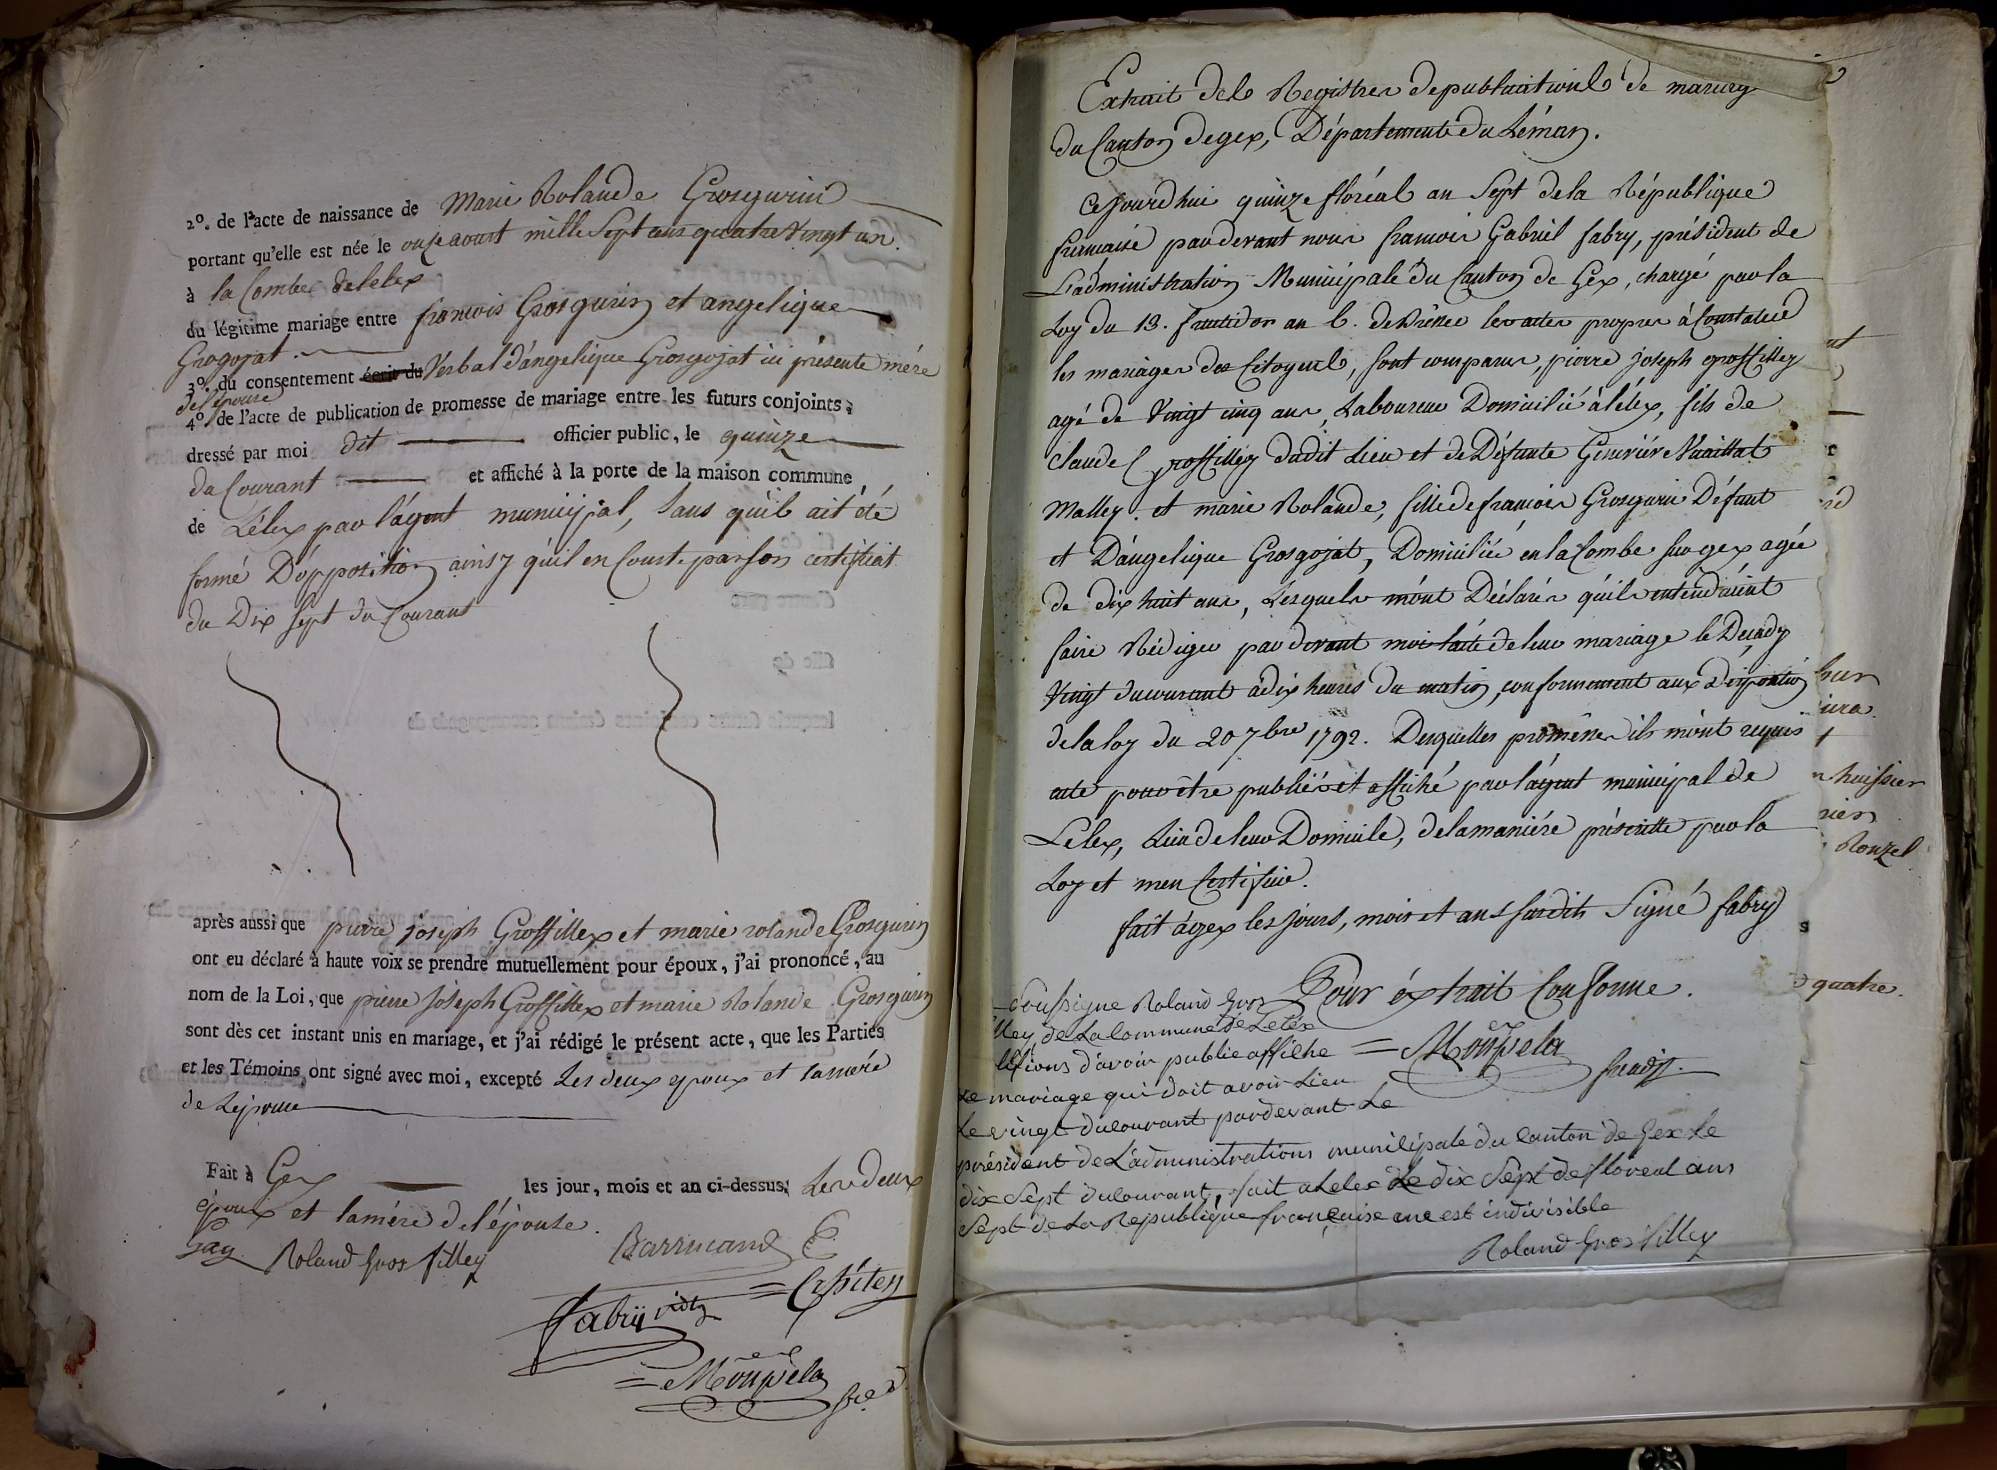 2º. de l'acte de naissance de Marie Rolande Grosgurin
portant qu'elle est née le onze aoust mille Sept cens quatre vingt un.
à la Combe de lelex
du légitime mariage entre francois Grosgurin et angelique
Grogojat.
3º. du consentement écrit du Verbal d'angelique Grosgojat ici présente mére
de l'épouse
4º. de l'acte de publication de promesse de mariage entre les futurs conjoints,
dressé par moi dit officier public, le quinze
du Courant et affiché à la porte de la maison commune
de Lélex par l'agent municipal, Sans qu'il ait été
formé D'opposition ainsy qu'il en Conste par son certificat
du Dix Sept du Courant
après aussi que pierre joseph Grossillex et marie rolande Grosgurin
ont eu déclaré à haute voix se prendre mutuellement pour époux, j'ai prononcé, au
nom de la Loi, que pierre Joseph Grossillex et marie Rolande Grosgurin
sont dès cet instant unis en mariage, et j'ai rédigé le présent acte, que les Parties
et les Témoins ont signé avec moi, excepté Les deux epoux et la mére
de Lepouse
Fait à Gex les jour, mois et an ci-dessus; Les deux
époux et la mére de l'épouse.
Roland Gros filley
Fabry
Extrait de le Registres de publications de mariag
du Canton de gex, Département du Léman.
Cejourd'hui quinze floréal an Sept de la République
francaise par devant nous francois Gabriel fabry, président de
L'administration Municipale du Canton de Gex, chargé par la
Loy du 13. fructidor an 6. de Dresser les actes propres à Constater
les mariages des Citoyens, sont comparus, pierre joseph grossilley
agé de Vingt cinq ans, Laboureur Domicilié à lélex, fils de
Claude Grossilley dudit Lieu et de Défunte Geneviéve Vuaillat
Malley. et marie Rolande, fille de francois Grosgurin Défunt
et D'angelique Grosgojat, Domiciliée en la Combe sur gex agée
de dix huit ans, Lesquels m'ont Déclarés qu'ils entendaient
faire Rédiger par devant moi l'acte de leur mariage le Decady
Vingt du courant à dix heures du matin, conformement aux Dispositio
de la loy du 20 7bre 1792. Desquelles promesses ils m'ont requis
acte pour être publiées et affiché par l'agent municipal de
Lélex, Lieu de leur Domicile, de la maniére préscritte par la
Loy et men Certifier.
fait à gex les jours, mois et ans susdits Signé fabry
Pour éxtrait Conforme.
Soussigne Roland Gros
illey, de La Commune de Lelex
d'avoir publie affiche
Le mariage qui doit avoir Lieu
Le vingt du courant pardevant Le
président de L'administrations municipale du canton de Gex Le
dix Sept du courant, fait a Lelex Le dix Sept de floreal ans
Sept de La Republique française une est indivisible
Roland Gros filley
huissier
Ronzel
quatre.